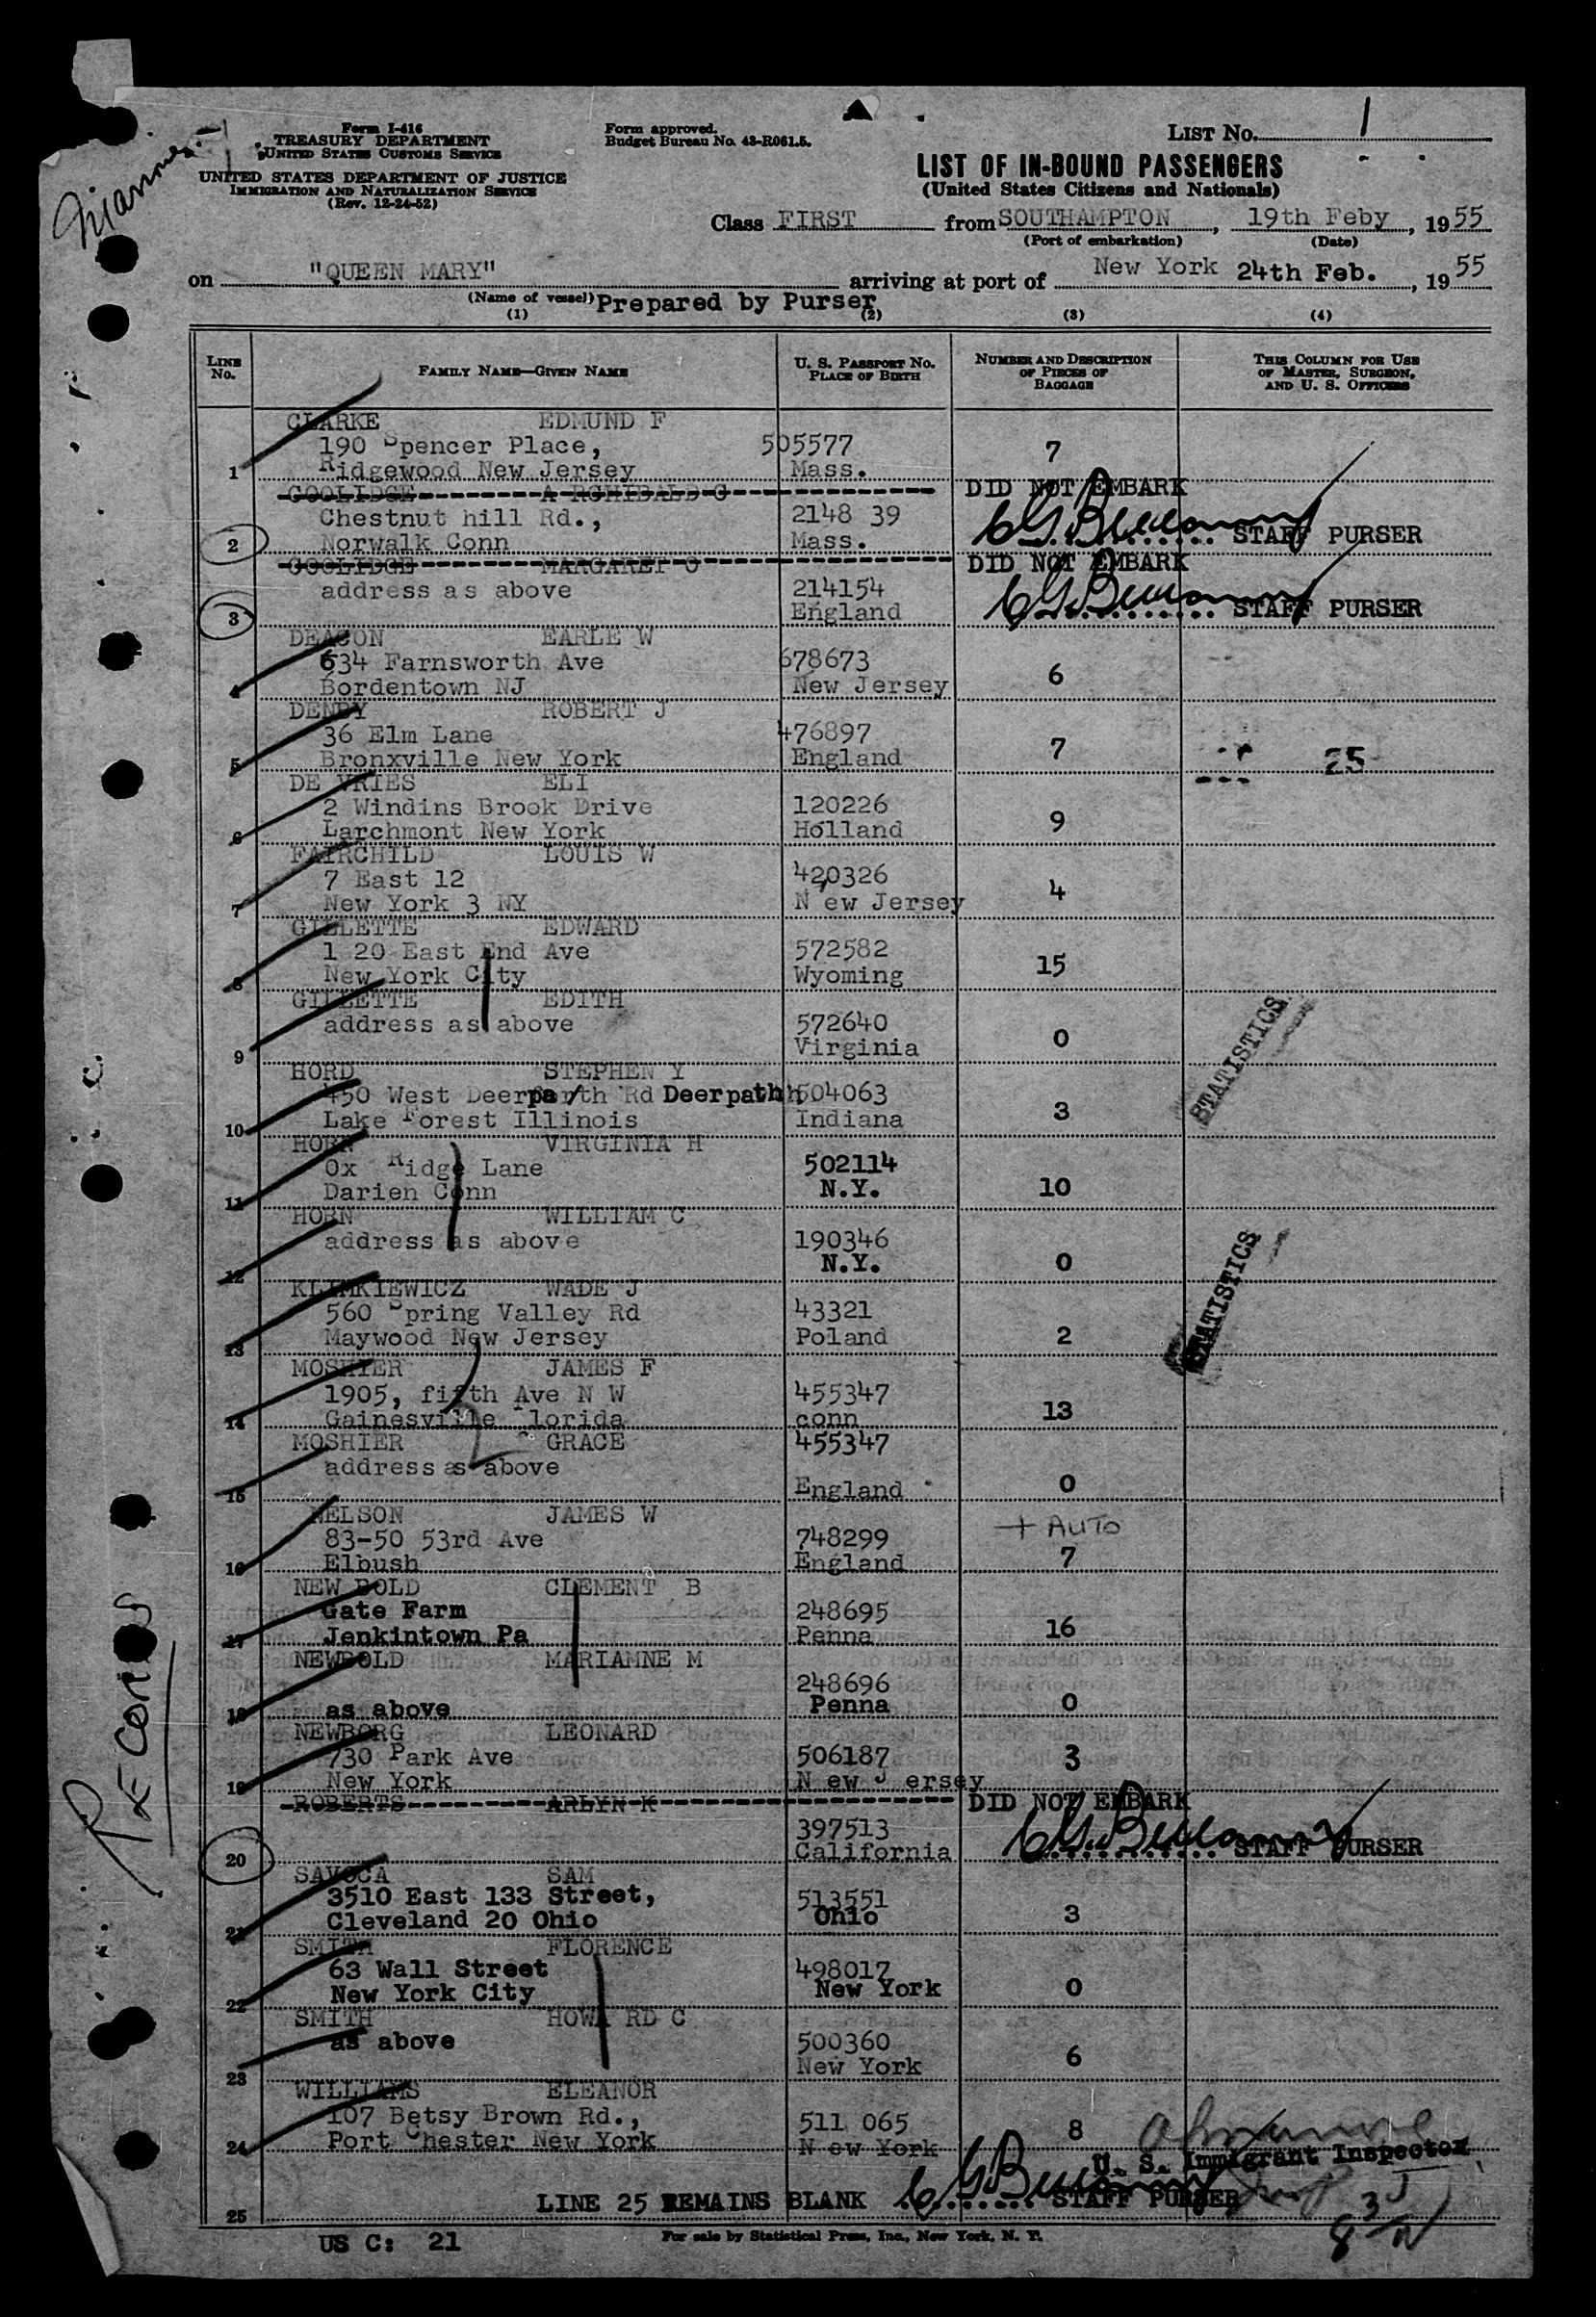 Form I-416
TREASURY DEPARTMENT
UNITED STATES CUSTOMS SERVICE
UNITED STATES DEPARTMENT OF JUSTICE
IMMIGRATION AND NATURALIZATION SERVICE
(Rev. 12-24-52)
Form approved.
Budget Bureau No. 43-R061.5.
LIST No. 1
LIST OF IN-BOUND PASSENGERS
(United States Citizens and Nationals)
Class FIRST from SOUTHAMPTON, 19th Feby, 1955
(Port of embarkation) (Date)
on "QUEEN MARY" arriving at port of New York 24th Feb., 1955
(Name of vessel) Prepared by Purser
(1) (2) (3) (4)
LINE No. FAMILY NAME—GIVEN NAME U. S. PASSPORT No. PLACE OF BIRTH NUMBER AND DESCRIPTION OF PIECES OF BAGGAGE THIS COLUMN FOR USE OF MASTER, SURGEON, AND U. S. OFFICERS
CLARKE EDMUND F
190 Spencer Place, 505577 7
1 Ridgewood New Jersey Mass.
COOLIDGE A RCHIBALD C DID NOT EMBARK
Chestnut hill Rd., 2148 39
2 Norwalk Conn Mass. STAFF PURSER
COOLIDGE MARGARET O DID NOT EMBARK
address as above 214154
3 England STAFF PURSER
DEACON EARLE W
634 Farnsworth Ave 678673 6
4 Bordentown NJ New Jersey
DENBY ROBERT J
36 Elm Lane 476897 7 25
5 Bronxville New York England
DE VRIES ELI
2 Windins Brook Drive 120226 9
6 Larchmont New York Holland
FAIRCHILD LOUIS W
7 East 12 420326 4
7 New York 3 NY N ew Jersey
GILLETTE EDWARD
1 20 East End Ave 572582 15
8 New York City Wyoming
GILLETTE EDITH
address as above 572640 0
9 Virginia
STATISTICS
HORD STEPHEN Y
450 West Deerpa th Rd Deerpath 504063 3
10 Lake Forest Illinois Indiana
HORN VIRGINIA H
Ox Ridge Lane 502114 10
11 Darien Conn N.Y.
HORN WILLIAM C
address as above 190346
12 N.Y. 0
STATISTICS
KLIMKIEWICZ WADE J
560 Spring Valley Rd 43321
13 Maywood New Jersey Poland 2
MOSHIER JAMES F
1905, fifth Ave N W 455347 13
14 Gainesville Florida conn
MOSHIER GRACE 455347
address as above
15 England 0
NELSON JAMES W + AUTO
83-50 53rd Ave 748299 7
16 Elbush England
NEW BOLD CLEMENT B
Gate Farm 248695 16
17 Jenkintown Pa Penna
NEWBOLD MARIAMNE M
248696
18 as above Penna 0
NEWBORG LEONARD
730 Park Ave 506187 3
19 New York N ew J ersey
ROBERTS ARLYN K DID NOT EMBARK
397513
20 California STAFF PURSER
SAVOCA SAM
3510 East 133 Street, 513551 3
21 Cleveland 20 Ohio Ohio
SMITH FLORENCE
63 Wall Street 498017 0
22 New York City New York
SMITH HOWA RD C
as above 500360 6
23 New York
WILLIAMS ELEANOR
107 Betsy Brown Rd., 511 065 8
24 Port Chester New York N ew York
U. S. Immigrant Inspector
25 LINE 25 REMAINS BLANK STAFF PURSER
US C: 21
For sale by Statistical Press, Inc., New York, N. Y.